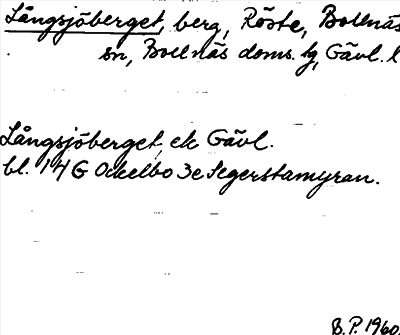 Långsjöberget, berg, Röste, Bollnäs
sn, Bollnäs doms. hg, Gävl. l
Långsjöberget, ek Gävl.
bl. 14 G Ockelbo 3e Segerstamyran.
B.P. 1960.